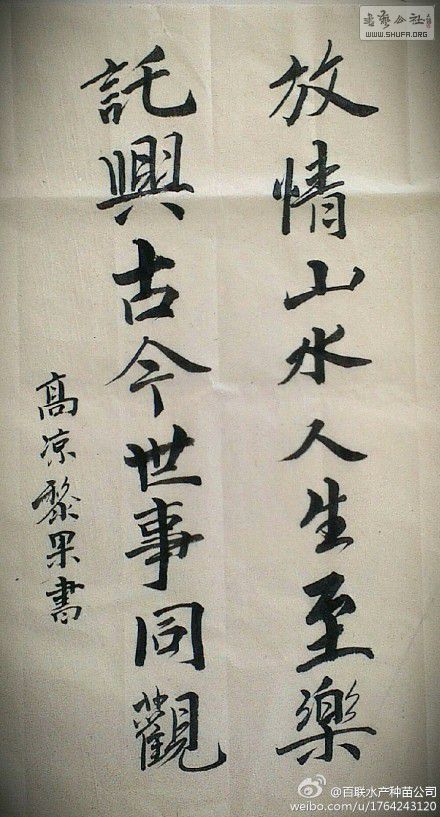 放情山水人生至樂
託興古今世事同觀
高凉黎果書
書藝公社
www.SHUFA.ORG
@百联水产种苗公司
weibo.com/u/1764243120